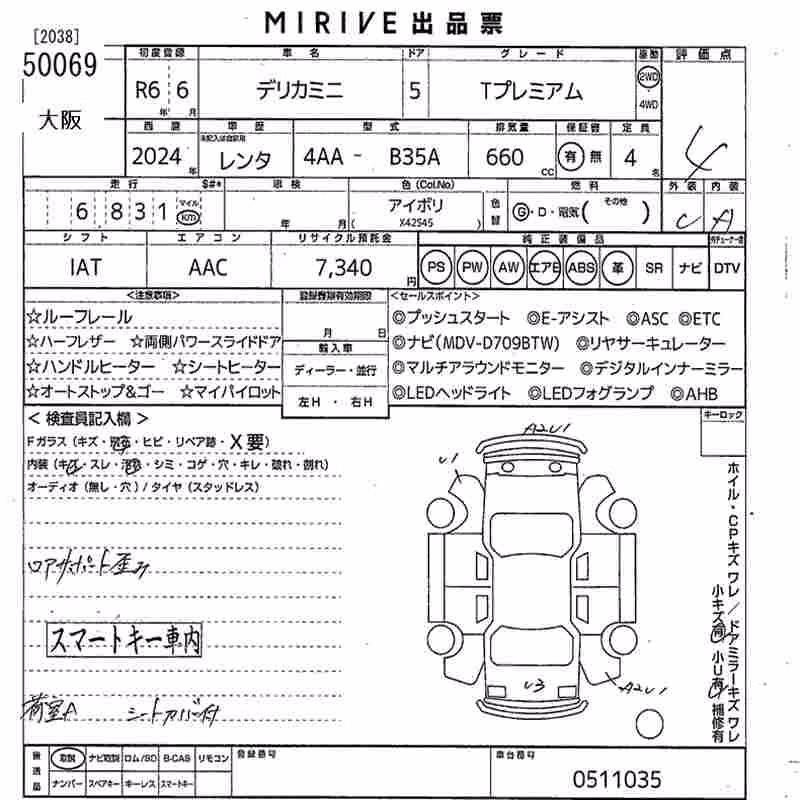 MIRIVE 出品票
[2038]
50069
大阪
初度登録 車名 ドア グレード 駆動 評価点
R6 6 デリカミニ 5 Tプレミアム 2WD
年 月 4WD
4
西暦 車歴 型式 排気量 保証書 定員
未記入は自家用
2024 年 レンタ 4AA - B35A 660 cc 有 無 4 名
走行 $#* 車検 色(Col.No) 色替 燃料 外装 内装
6 8 3 1 マイル km 年 月 アイボリ G・D・電気( その他 ) C A
( X42S45 )
シフト エアコン リサイクル預託金 純正装備品
IAT AAC 7,340 円 PS PW AW エアB ABS 革 SR ナビ DTV
<注意事項> 登録書類有効期限 <セールスポイント>
☆ルーフレール 月 日 ◎プッシュスタート ◎E-アシスト ◎ASC ◎ETC
☆ハーフレザー ☆両側パワースライドドア 輸入車 ◎ナビ(MDV-D709BTW) ◎リヤサーキュレーター
☆ハンドルヒーター ☆シートヒーター ディーラー・並行 ◎マルチアラウンドモニター ◎デジタルインナーミラー
☆オートストップ&ゴー ☆マイパイロット 左H・右H ◎LEDヘッドライト ◎LEDフォグランプ ◎AHB
<検査員記入欄> キーロック
Fガラス(キズ・飛石・ヒビ・リペア跡・X要)
内装(キズ・スレ・汚れ・シミ・コゲ・穴・キレ・破れ・割れ)
オーディオ(無し・穴)/タイヤ(スタッドレス)
A2U1
U1
ロアサポート歪み
スマートキー車内
荷室A シートカバー付
U3
A2U1
ホイル・CPキズ ワレ/ドアミラーキズ ワレ
小キズ有 小U有 補修有
後送品 取説 ナビ取説 ロム/SD B-CAS リモコン 登録番号 車台番号
ナンバー スペアキー キーレス スマートキー 0511035